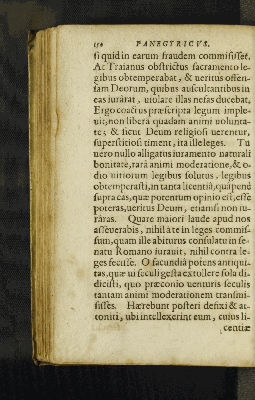 154 PANEGYRICVS.
si quid in earum fraudem commisisset.
At Traianus obstrictus sacramento le-
gibus obtemperabat, & ueritus offen-
sam Deorum, quibus auscultantibus in
eas iurarat, uiolare illas nefas ducebat.
Ergo coactus præscripta legum imple-
uit, non libera quadam animi volunta-
te; & sicut Deum religiosi uerentur,
superstitiosi timent, ita ille leges. Tu
uero nullo alligatus iuramento naturali
bonitate, rara animi moderatione, & o-
dio uitiorum legibus solutus, legibus
obtemperasti, in tanta licentia, qua penè
supra cas, quæ potentum opinio est, esse
poteras, ueritus Deum, etiamsi non iu-
raras. Quare maiori laude apud nos
asseuerabis, nihil à te in leges commis-
sum, quam ille abiturus consulatu in se-
natu Romano iurauit, nihil contra le-
ges fecisse. O facundia potens antiqui-
tas, quæ ui seculi gesta extollere sola di-
dicisti, quo præconio uenturis seculis
tantam animi moderationem transmi-
sisses. Hærebunt posteri defixi & at-
toniti, ubi intellexerint eum, cuius li-
centiæ